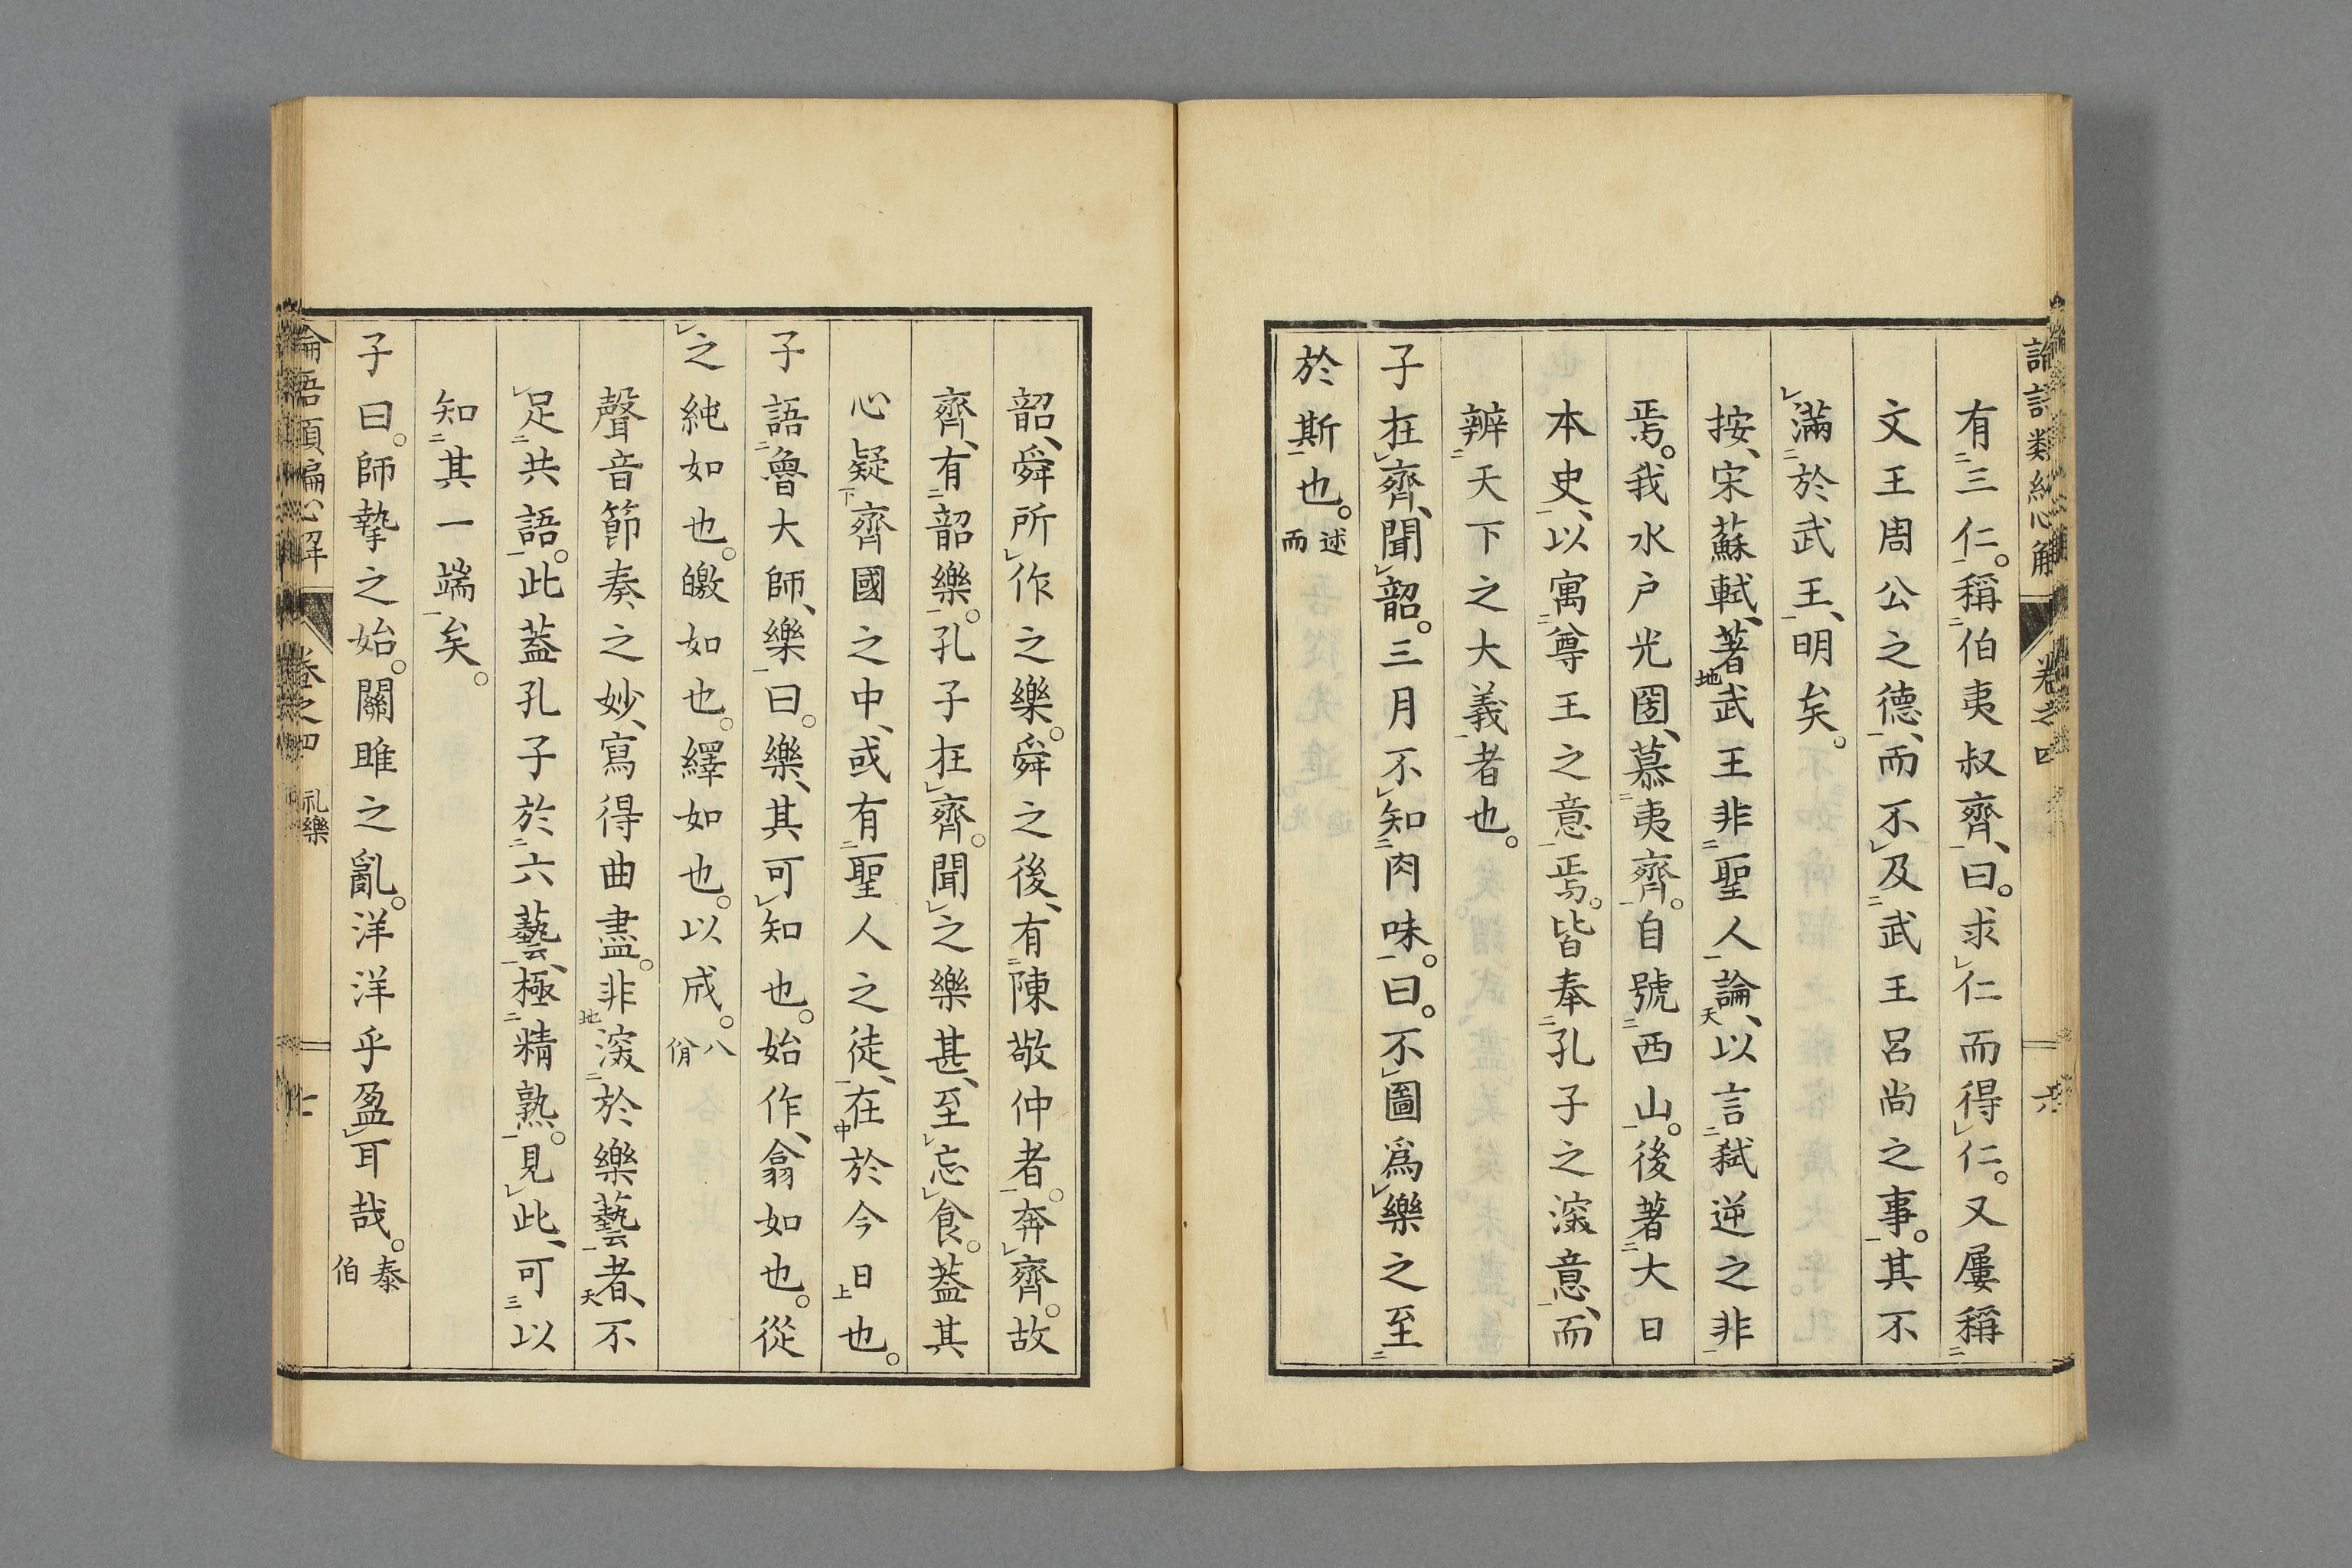 有三仁。稱伯夷叔齊、曰。求仁而得仁。又屢稱
文王周公之德、而不及武王呂尚之事。其不
滿於武王、明矣。
按、宋蘇軾、著武王非聖人論、以言弑逆之非
焉。我水戶光圀、慕夷齊。自號西山。後著大日
本史、以寓尊王之意焉。皆奉孔子之深意、而
辨天下之大義者也。
子在齊、聞韶。三月不知肉味。曰。不圖爲樂之至
於斯也。述而
韶、舜所作之樂。舜之後、有陳敬仲者。奔齊。故
齊、有韶樂。孔子在齊。聞之樂甚、至忘食。蓋其
心疑齊國之中、或有聖人之徒、在於今日也。
子語魯大師、樂曰。樂、其可知也。始作、翕如也。從
之純如也。皦如也。繹如也。以成。八佾
聲音節奏之妙、寫得曲盡。非深於樂藝者、不
足共語。此蓋孔子於六藝、極精熟。見此、可以
知其一端矣。
子曰。師摯之始。關雎之亂。洋洋乎盈耳哉。泰伯
卷之四 礼樂